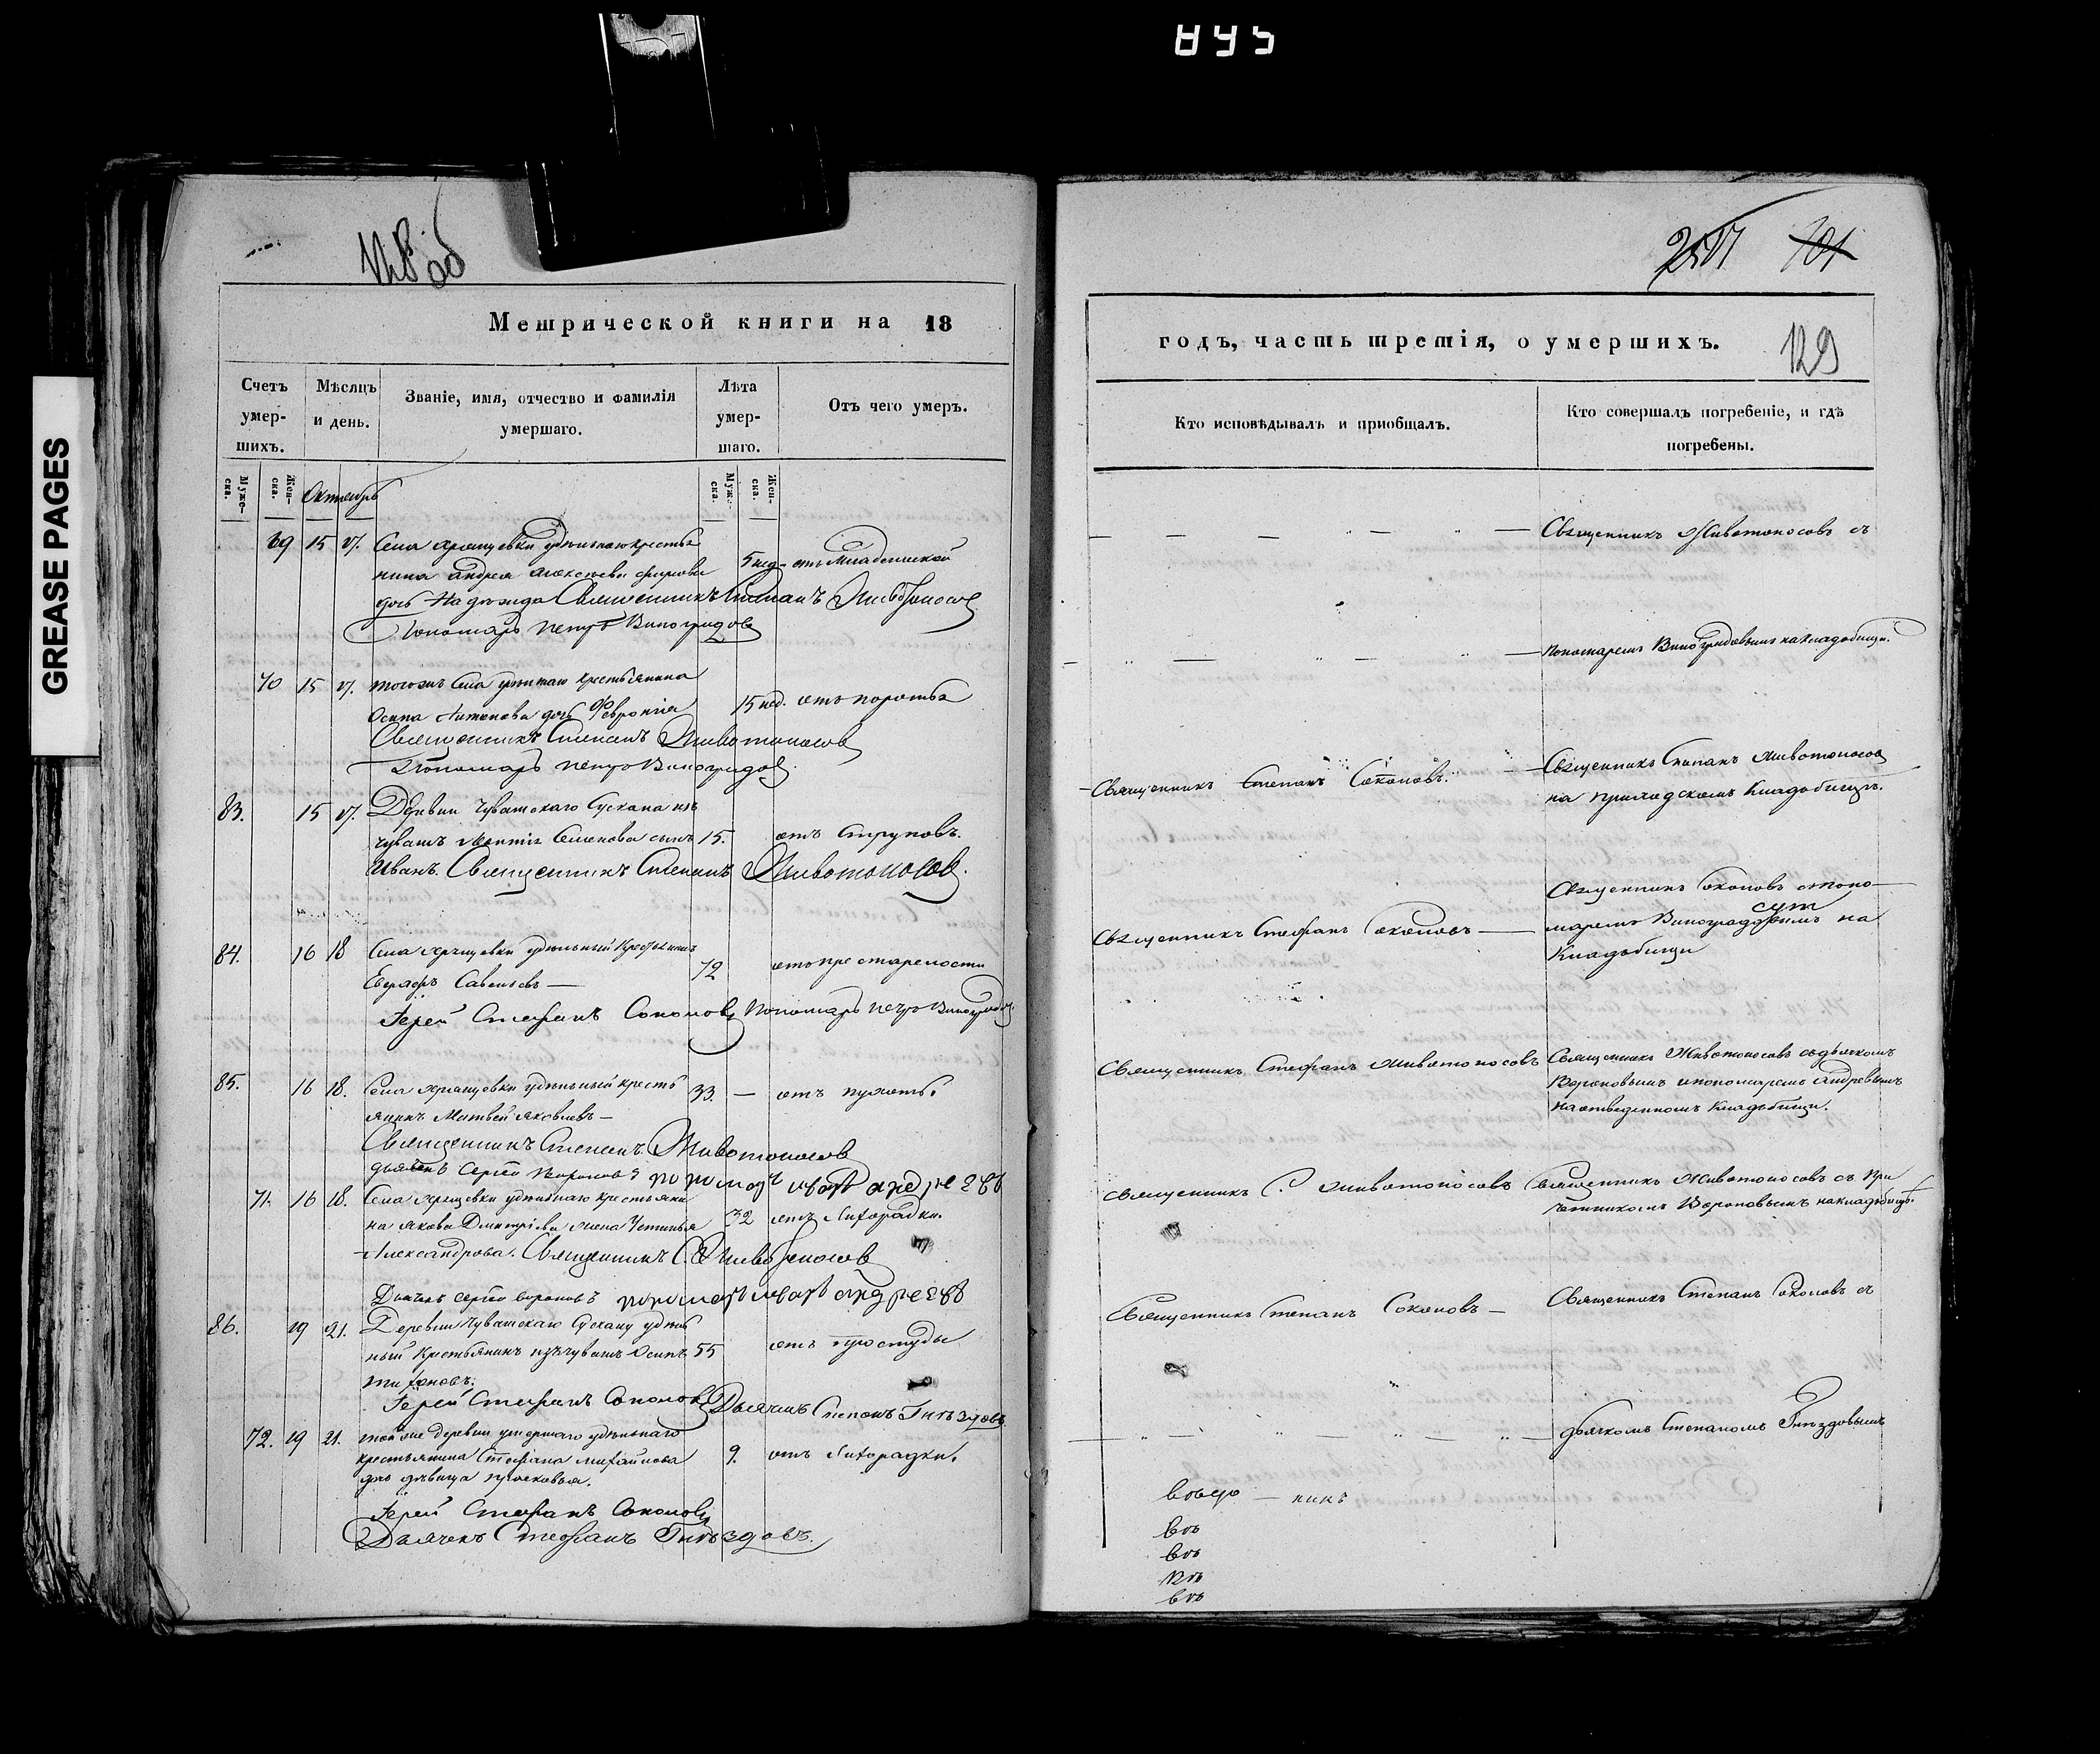 GREASE PAGES
128 об
Метрической книги на 18
Счетъ умер-шихъ.
Мѣсяцъ и день.
Званіе, имя, отчество и фамилія умершаго.
Лѣта умер-шаго.
Отъ чего умеръ.
Муже-ска.
Жен-ска.
Октябрь
Муже-ска.
Жен-ска.
69 15 17. Села Хрящевки удѣльнаго кресть
янина Андрея Алексѣева 5 нед. отъ младенческой
дочь Надежда Священникъ Степанъ Животоносовъ
Пономарь Петръ Виноградовъ
70 15 17. тогожъ Села удѣльнаго крестьянина
Осипа Антонова дочь Февронія 15 нед. отъ
Священникъ Степанъ Животоносовъ
Пономарь Петръ Виноградовъ
83. 15 17. Деревни Чувашскаго Сускана изъ
чувашъ Семенова сынъ 15. отъ струповъ.
Иванъ. Священникъ Степанъ Животоносовъ.
84. 16 18 Села Хрящевки удѣльный Крестьянинъ
Савельевъ — 72 отъ престарелости
Іерей Стефанъ Соколовъ Пономарь Петръ Виноградовъ
85. 16 18. Села Хрящевки удѣльный кресть
янинъ Матвей Яковлевъ — 33. — отъ
Священникъ Степанъ Животоносовъ
дьячекъ Сергей Вороновъ пономарь Иванъ Андреевъ
71. 16 18. Села Хрящевки удѣльнаго крестьяни
на Якова Дмитріева жена Устинья 32 отъ лихорадки.
Александрова. Священникъ С. Животоносовъ
Дьячекъ Сергей Вороновъ пономарь Иванъ Андреевъ
86. 19 21. Деревни Чувашскаго Сускану удѣль
ный Крестьянинъ изъ чувашъ Осипъ 55 отъ простуды
Тихоновъ.
Іерей Стефанъ Соколовъ Дьячекъ Степанъ Гнѣздовъ.
72. 19 21. той же деревни умершаго удѣльнаго
крестьянина Стефана Михайлова 9. отъ лихорадки.
дочь дѣвица
Іерей Стефанъ Соколовъ
Дьячекъ Стефанъ Гнѣздовъ.
101
годъ, часть третія, о умершихъ.
129
Кто исповѣдывалъ и пріобщалъ.
Кто совершалъ погребеніе, и гдѣ погребены.
Священникъ Животоносовъ съ
пономаремъ Виноградовымъ на кладбищи.
Священникъ Степанъ Соколовъ.
Священникъ Степанъ Животоносовъ
на приходскомъ кладбищѣ.
Священникъ Стефанъ Соколовъ —
Священникъ Соколовъ с поно
маремъ Виноградовымъ на
Кладбищи
Священникъ Стефанъ Животоносовъ
Священникъ Животоносовъ съ дьячкомъ
Вороновымъ и пономаремъ Андревымъ
на отведенномъ Кладбищи.
Священникъ С. Животоносовъ
Священникъ Животоносовъ съ при
четникомъ Вороновымъ на кладбищѣ.
Священникъ Степанъ Соколовъ —
Священникъ Степанъ Соколовъ съ
дьячкомъ Степаномъ Гнѣздовымъ